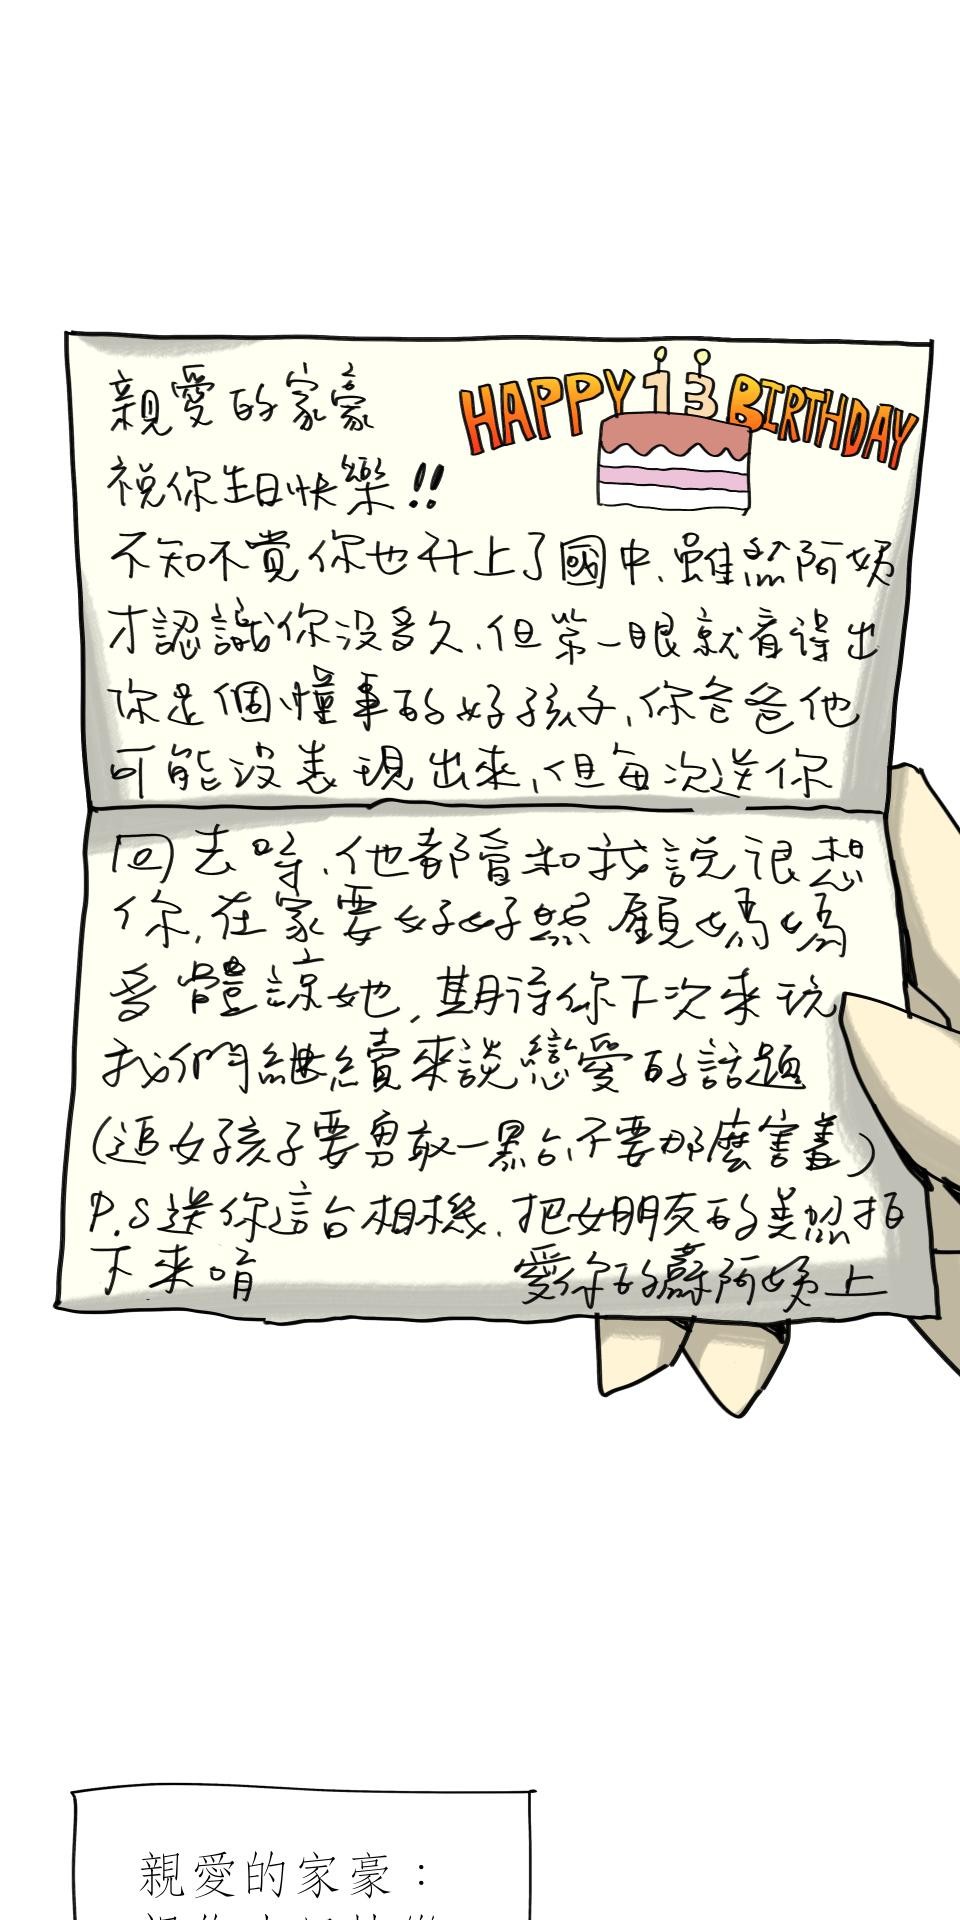 親愛的家豪
HAPPY 13 BIRTHDAY
祝你生日快樂!!
不知不覺你也升上了國中、雖然阿姨
才認識你沒多久、但第一眼就看得出
你是個懂事的好孩子、你爸爸他
可能沒表現出來、但每次送你
回去時、他都會和我說很想
你、在家要好好照顧媽媽
多體諒她、期待你下次來玩
我們繼續來談戀愛的話題
(追女孩子要勇敢一點、不要那麼害羞)
P.S送你這台相機、把女朋友的美照拍
下來唷
愛你的蘇阿姨上
親愛的家豪：